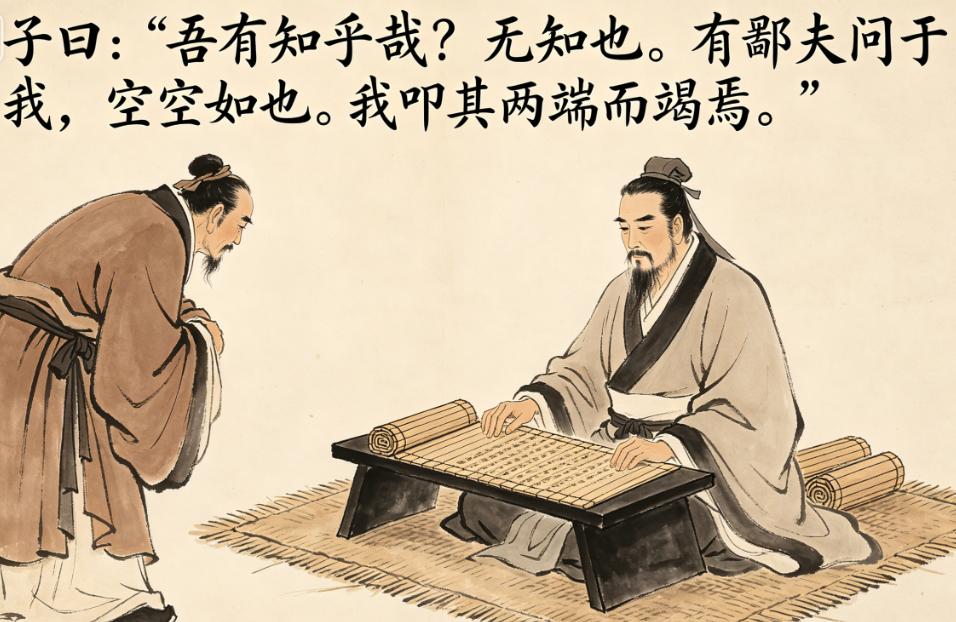 子曰：“吾有知乎哉？无知也。有鄙夫问于
我，空空如也。我叩其两端而竭焉。”